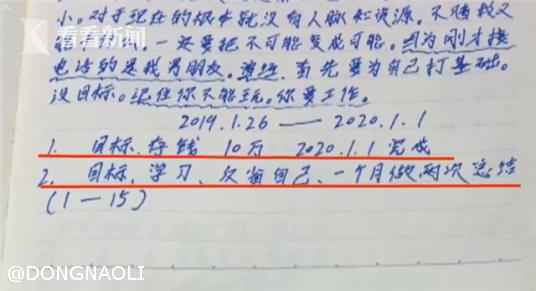 小。对于现在的根本就没有人脉和资源。不赌我又
看看新闻
一定要把不可能变成可能。因为刚才接
电话的是我男朋友。首先要为自己打基础。
没目标。记住你不能玩。你要工作。
2019.1.26 — 2020.1.1
1. 目标、存钱 10万 2020.1.1 完成
2. 目标、学习、反省自己、一个月做两次总结
(1—15)
@DONGNAOLI